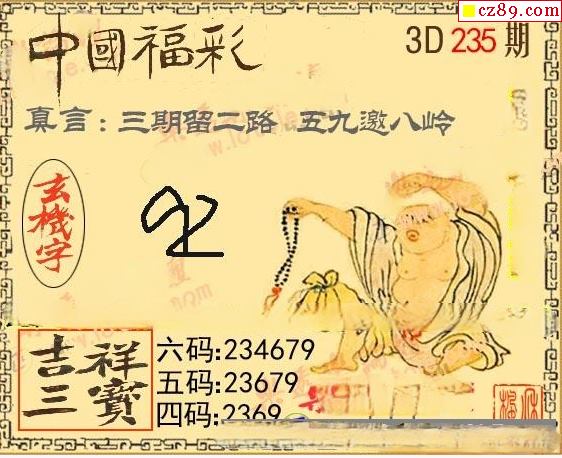 cz89.com
中國福彩
3D 235 期
真言：三期留二路 五九邀八岭
玄機字
吉祥三寶
六码:234679
五码:23679
四码:2369